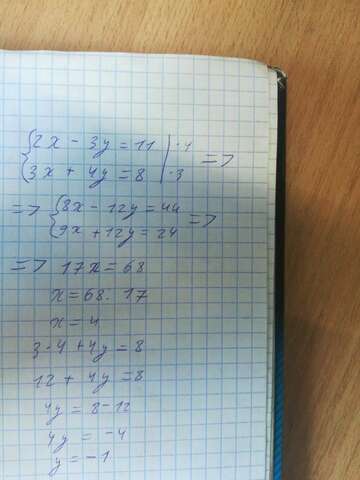 {2x - 3y = 11 | ·4
{3x + 4y = 8 | ·3 =>
=> {8x - 12y = 44
{9x + 12y = 24 =>
=> 17x = 68
x = 68 : 17
x = 4
3·4 + 4y = 8
12 + 4y = 8
4y = 8 - 12
4y = -4
y = -1